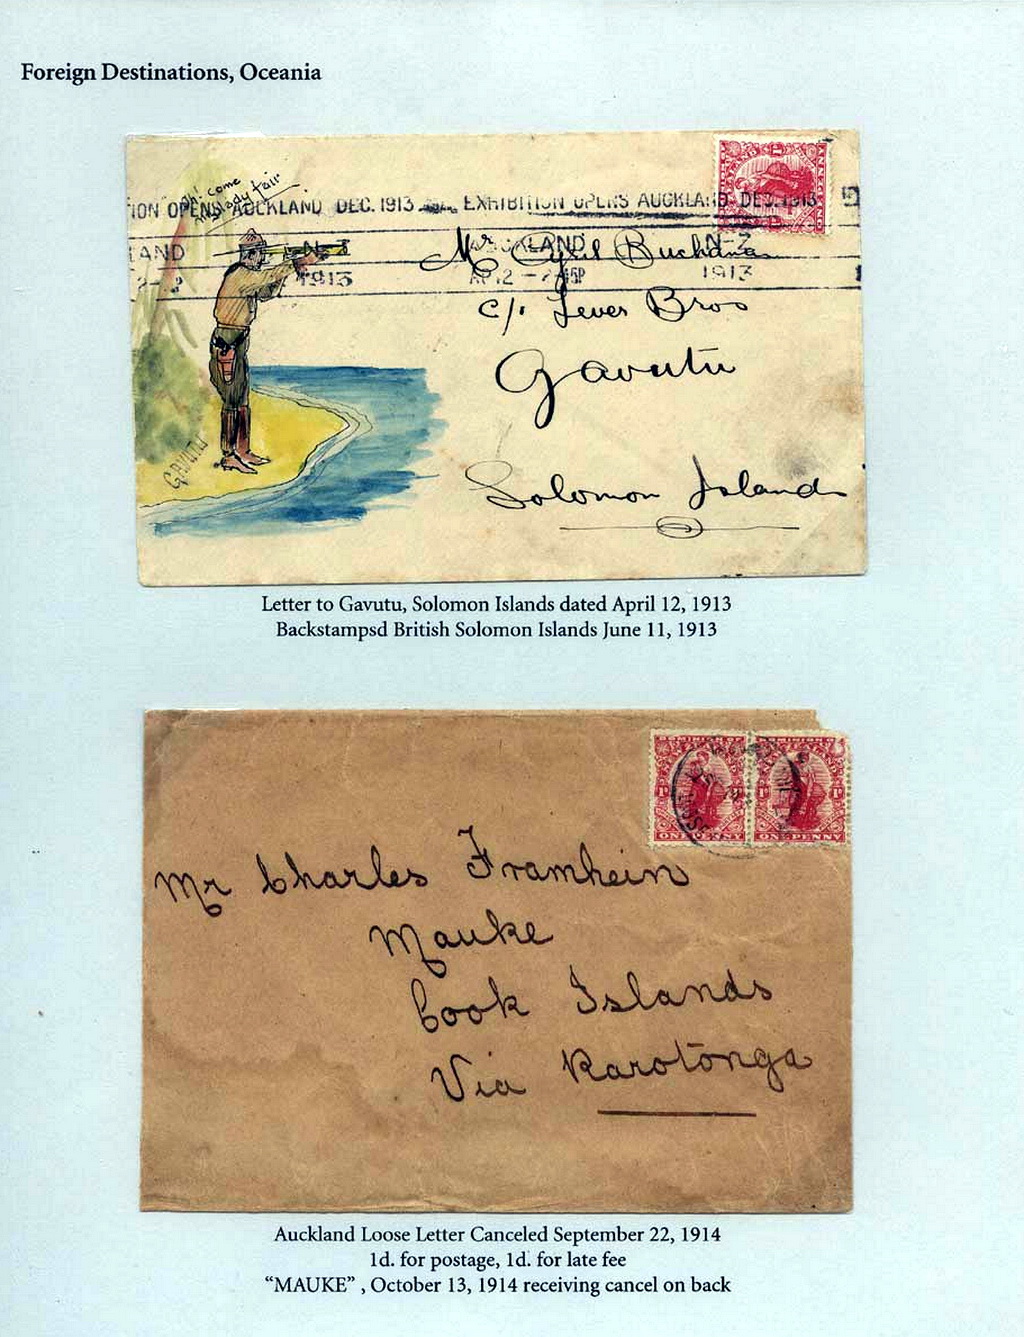 Foreign Destinations, Oceania
Oh! come
my lady fair"
ION OPENS AUCKLAND DEC. 1913 EXHIBITION OPENS AUCKLAND DEC. 1913
LAND N-Z AUCKLAND N-Z
1913 AP 12 1913
Mr Cyril Buchanan
c/. Lever Bros
Gavutu
Solomon Islands
GAVUTU
Letter to Gavutu, Solomon Islands dated April 12, 1913
Backstampsd British Solomon Islands June 11, 1913
1D 1D
ONE PENNY ONE PENNY
Mr Charles Framhein
Mauke
Cook Islands
Via Rarotonga
Auckland Loose Letter Canceled September 22, 1914
1d. for postage, 1d. for late fee
“MAUKE” , October 13, 1914 receiving cancel on back